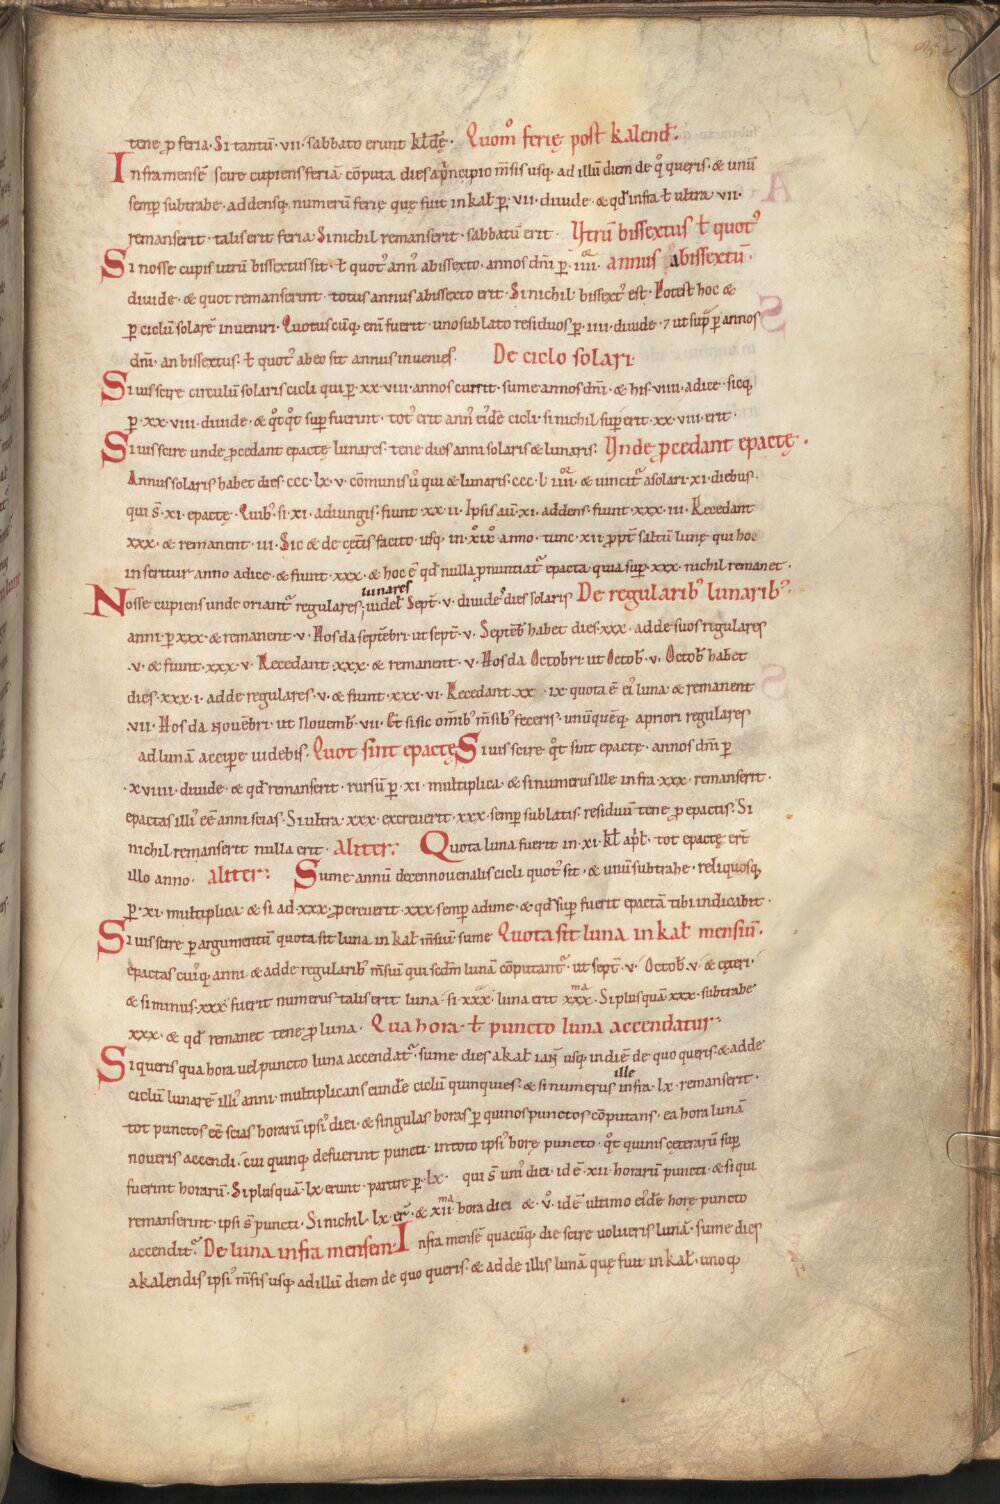 tene ꝓ feria. Si tantū .vii. sabbato erunt kl̄dę. Quom̊ ferię post kalend̄.
Infra mensē scire cupiens feriā cōputa dies a p̄ncipio m̄sis usq; ad illū diem de q̊ queris. & unū
semꝑ subtrahe. addensq; numerū ferię quę fuit in kal̄. ꝑ .vii. diuide. & qđ infra ł ultra .vii.
remanserit. talis erit feria. Si nichil remanserit. sabbatū erit. Vtrū bissextus ł quot᾿
Si nosse cupis utrū bissextus sit. ł quot᾿ ann᾿ a bissexto. annos dn̄i ꝑ .iiii. annus a bissextū.
diuide. & quot remanserint. totus annus a bissexto erit. Si nichil. bissext᾿ est. Potest hoc &
ꝑ ciclū solarē inueniri. Quotuscūq; enī fuerit. uno sublato residuos ꝑ .iiii. diuide. ⁊ ut sup̄ ꝑ annos
dn̄i. an bissextus. ł quot᾿ ab eo sit annus inuenies. De ciclo solari.
Si uis scire circulū solaris cicli qui ꝑ .xx.viii. annos currit. sume annos dn̄i. & his .viiii. adice. sicq;
ꝑ .xx.viii. diuide. & q̊tq̊t suꝑfuerint. tot᾿ erit ann᾿ ei᾿dē cicli. si nichil suꝑerit .xx.viii. erit.
Si uis scire unde ꝓcedant epactę lunares. tene dies anni solaris & lunaris. Vnde ꝓcedant epactę.
Annus solaris habet dies .ccc.lx.v. cōmunis ů qui & lunaris .ccc.l.iiii. & uincit᾿ a solari .xi. diebus.
qui s̄ .xi. epactę. Quib᾿ si .xi. adiungis. fiunt .xx.ii. Ipsis aū .xi. addens. fiunt .xxx.iii. Recedant
.xxx. & remanent .iii. Sic & de cęt̄is facito usq; in .xix. anno. tunc .xii. ꝓpt̄ saltū lunę qui hoc
inseritur anno adice. & fiunt .xxx. & hoc ē qđ nulla ꝓnuntiat᾿ epacta. quia suꝑ .xxx. nichil remanet.
lunares
Nosse cupiens unde oriant᾿ regulares. uidel᾿ Sept̄. v. diuide dies solaris De regularib᾿ lunarib᾿.
anni ꝑ .xxx. & remanent .v. Hos da septēbri ut sept̄ .v. Septēb᾿ habet dies .xxx. adde suos regulares
.v. & fiunt .xxx.v. Recedant .xxx. & remanent .v. Hos da Octobri ut Octob᾿ .v. Octob᾿ habet
dies .xxx.i. adde regulares .v. & fiunt .xxx.vi. Recedant .xx ix quota ē ei᾿ luna & remanent
.vii. Hos da Nouēbri ut Nouemb᾿ .vii. Et si sic om̄ib᾿ m̄sib᾿ feceris. unūquēq; a priori regulares
ad lunā accipere uidebis. Quot sint epactę Si uis scire q̊t sint epactę. annos dn̄i ꝑ
.xviiii. diuide. & qđ remanserit. rursū ꝑ .xi. multiplica. & si numerus ille infra .xxx. remanserit.
epactas illi᾿ eē anni scias. Si ultra .xxx. excreuerit .xxx. semꝑ sublatis. residuū tene ꝓ epactis. Si
nichil remanserit nulla erit. Aliter. Quota luna fuerit in .xi. kl̄ apl̄. tot epactę er̄t
illo anno. Aliter. Sume annū decennouenalis cicli quot᾿ sit. & unū subtrahe. reliquosq;
ꝑ .xi. multiplica. & si ad .xxx. ꝓcreuerit .xxx. semꝑ adime. & qđ suꝑfuerit epactā tibi indicabit.
Si uis scire ꝑ argumentū quota sit luna in kal̄ m̄siū sume Quota sit luna in kal̄ mensiū.
epactas cui᾿q; anni. & adde regularib᾿ m̄siū qui secđm lunā cōputant᾿. ut sept̄ .v. Octob᾿ .v. & cęteri.
& si minus .xxx. fuerit numerus talis erit luna. si .xxx. luna erit .xxx.ma Si plus quā .xxx. subtrahe
.xxx. & qđ remanet tene ꝓ luna. Qua hora ł puncto luna accendatur.
Si queris qua hora uel puncto luna accendat᾿. sume dies a kal̄ ian̄ usq; in diē de quo queris. & adde
ille
ciclū lunarē illi᾿ anni. multiplicans eundē ciclū quinquies. & si numerus infra .lx. remanserit.
tot punctos eē scias horarū ipsi᾿ diei. & singulas horas ꝑ quinos punctos cōputans. ea hora lunā
noueris accendi. cui quinq; defuerint puncti. in toto ipsi᾿ horę puncto. q̊t quinis cęterarū suꝑ
fuerint horarū. Si plus quā .lx. erunt. partire ꝑ .lx. qui s̄ uni᾿ diei. id ē .xii. horarū puncti. & si qui
remanserint. ipsi s̄ puncti. Si nichil .lx. er̄. & .xii.ma hora diei & ů. id ē ultimo ei᾿dē horę puncto
accendit᾿. De luna infra mensem. Infra mensē quacūq; die scire uolueris lunā. sume dies
a kalendis ipsi᾿ m̄sis usq; ad illū diem de quo queris. & adde illis lunā quę fuit in kal̄. unoq;